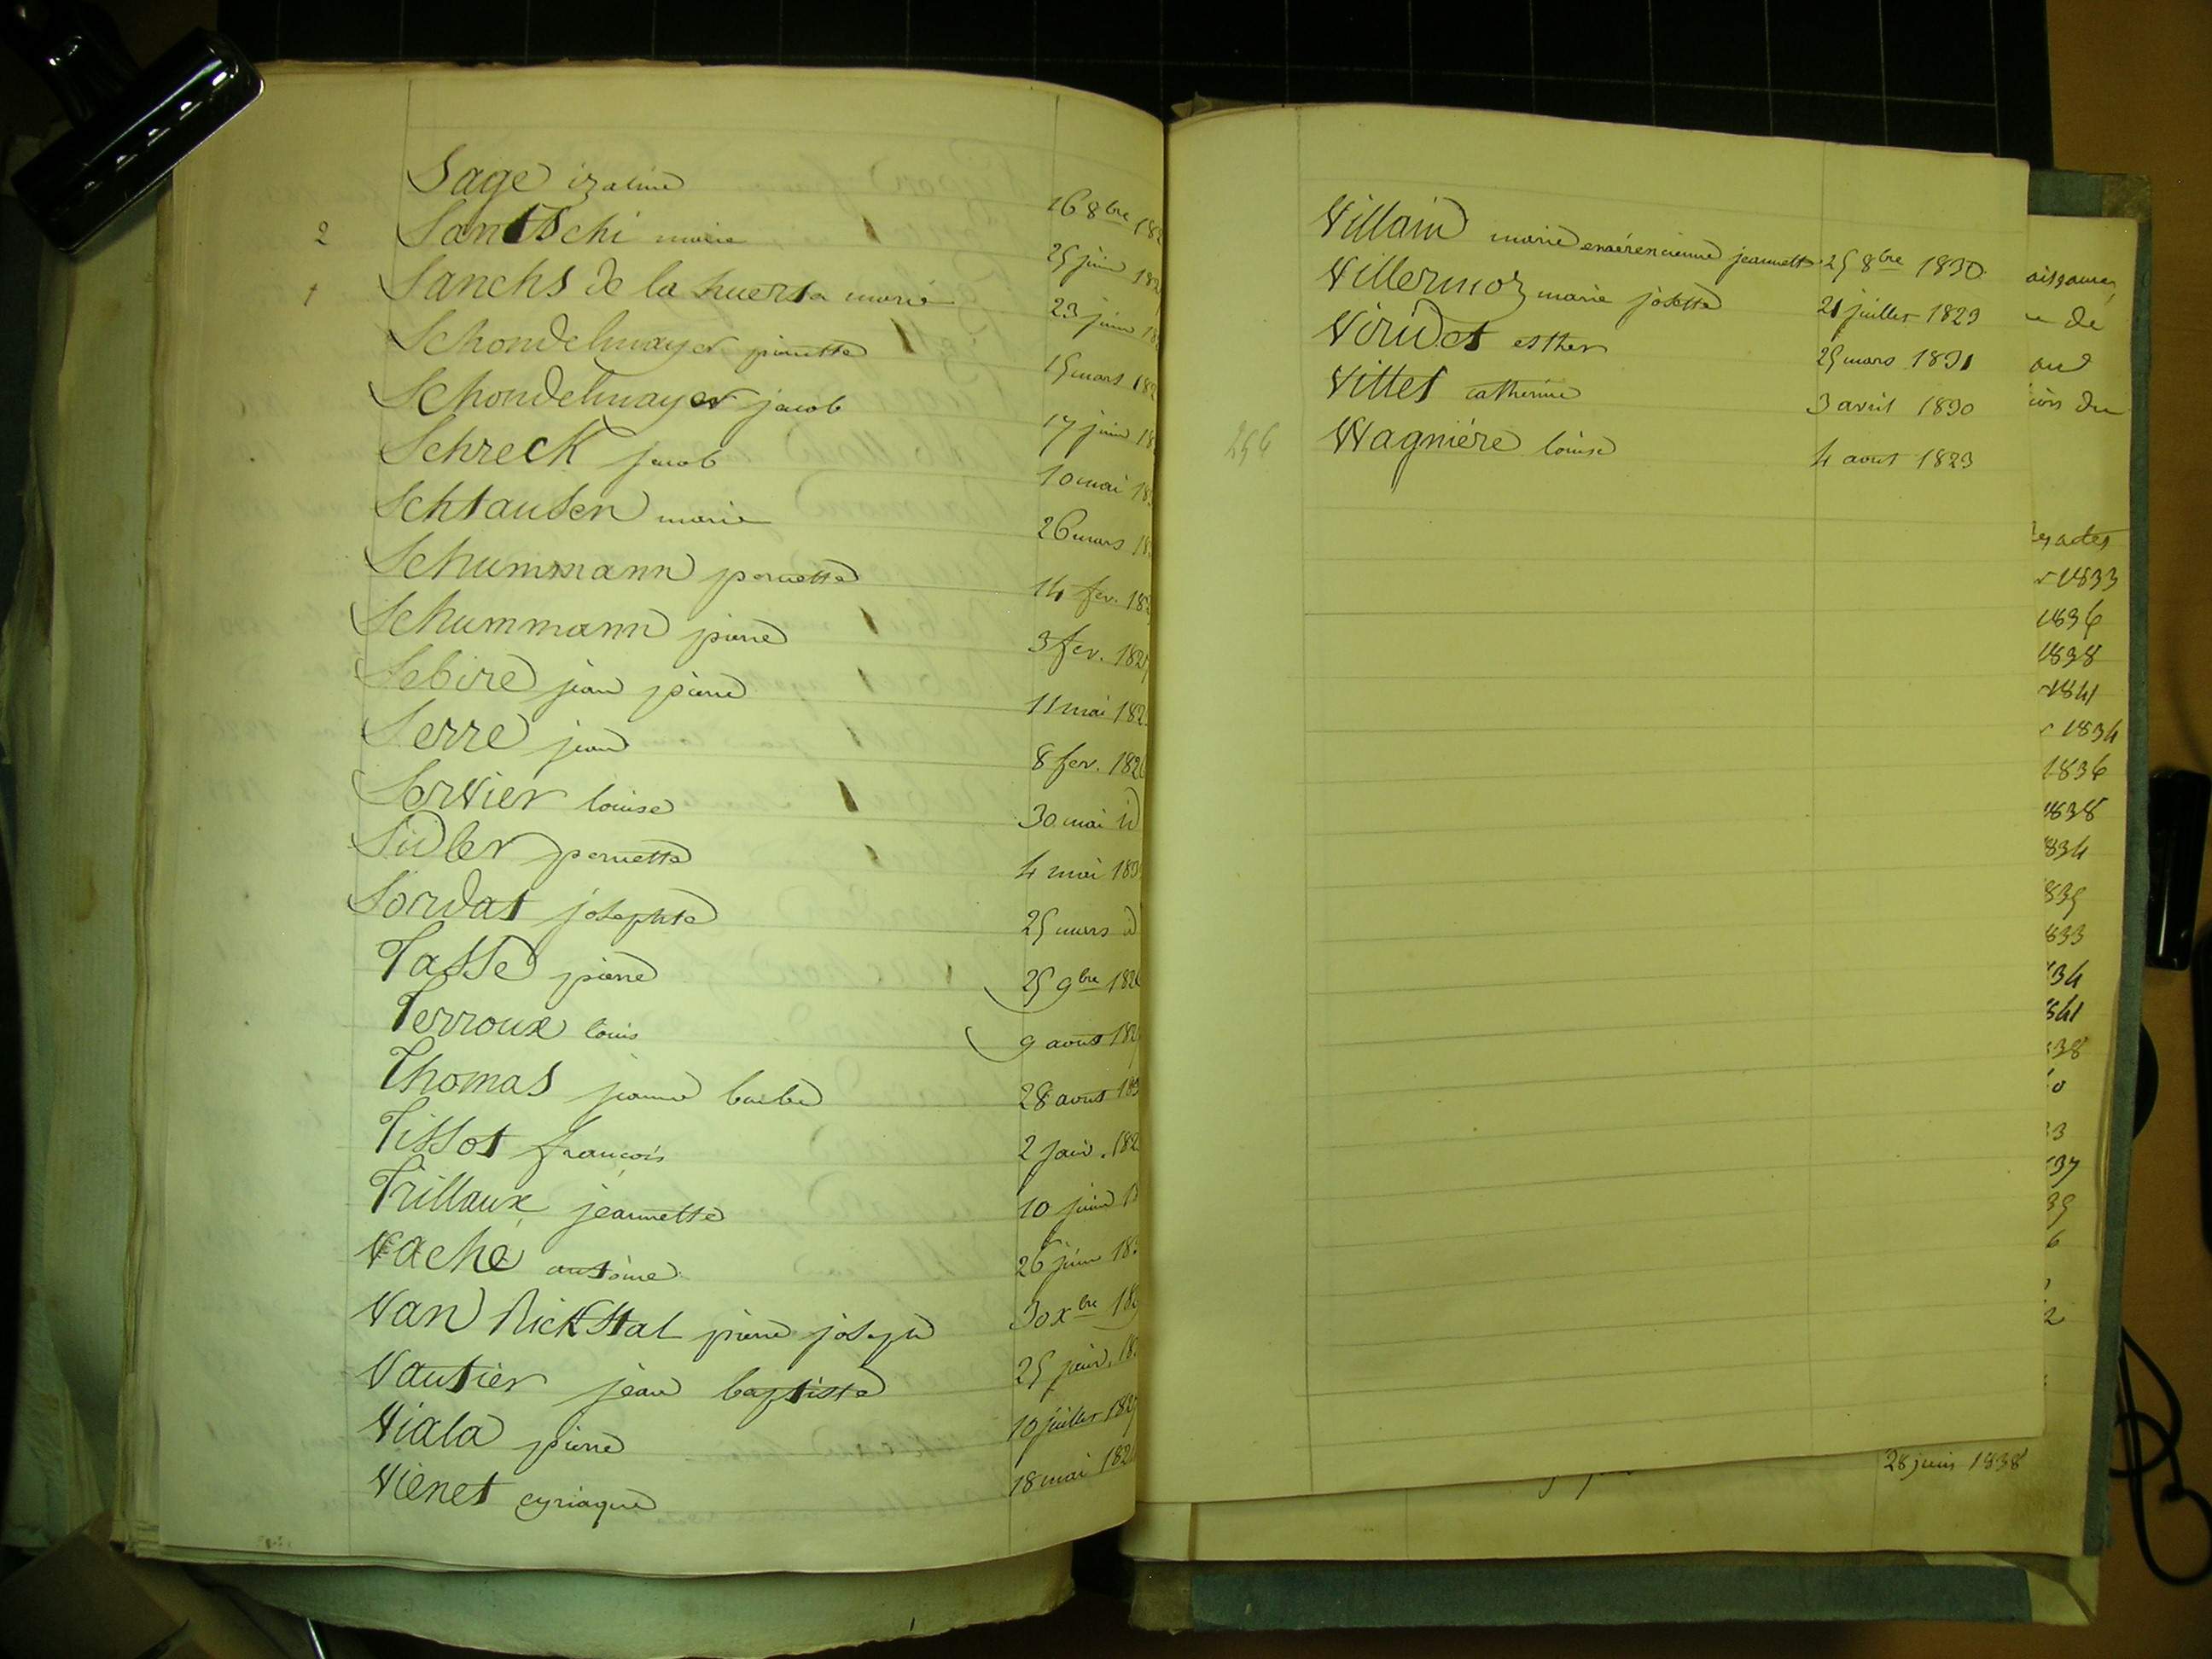 Sage izaline 16 8bre 182
2 Santschi marie 25 juin 182
1 Sanchs de la huerta marie 23 juin 18
Schondelmayer pierrette 15 mars 182
Schondelmayer jacob 17 juin 18
Schreck jacob 10 mai 18
Schtausen marie 26 mars 18
Schummann pernette 14 fev. 18
Schummann pierre 3 fev. 182
Sebire jean pierre 11 mai 182
Serre jean 8 fev. 182
Servier louise 30 mai id
Sidler pernette 4 mai 183
Sordat josephte 25 mars id
Tasse pierre 25 9bre 182
Terroux louis 9 aout 182
Thomas jeanne barbe 28 aout 183
Tissot francois 2 janv. 182
Trillaux jeannette 10 juin 1
Vache antoine 26 juin 18
Van Rickstal pierre joseph 30 xbre 18
Vautier jean baptiste 25 janv. 18
Viala pierre 10 juillet 182
Vienet cyriaque 18 mai 182
Villain marie jeannette 25 8bre 1830
Villermoz marie josette 21 juillet 1829
Viridet esther 25 mars 1831
Vittet catherine 3 avril 1830
256 Wagniére louise 4 aout 1823
e de
ion du
les actes
1833
1836
1838
1841
1834
1836
1838
834
839
833
34
841
38
0
3
37
39
6
2
28 juin 1838